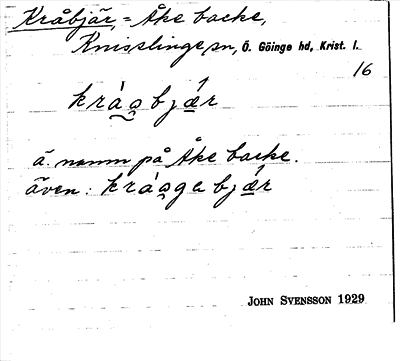 Kråbjär, = Åke backe,
Knisslinge sn, Ö. Göinge hd, Krist. l.
16
kråg bjǽr
ä. namn på Åke backe.
även: krågga bjǽr
JOHN SVENSSON 1929